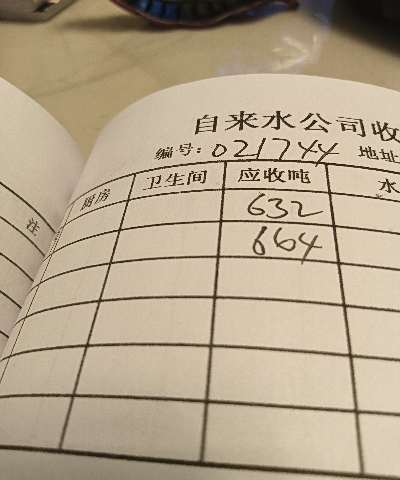 自来水公司收
编号: 021744 地址
注 厨房 卫生间 应收吨 水
632
664